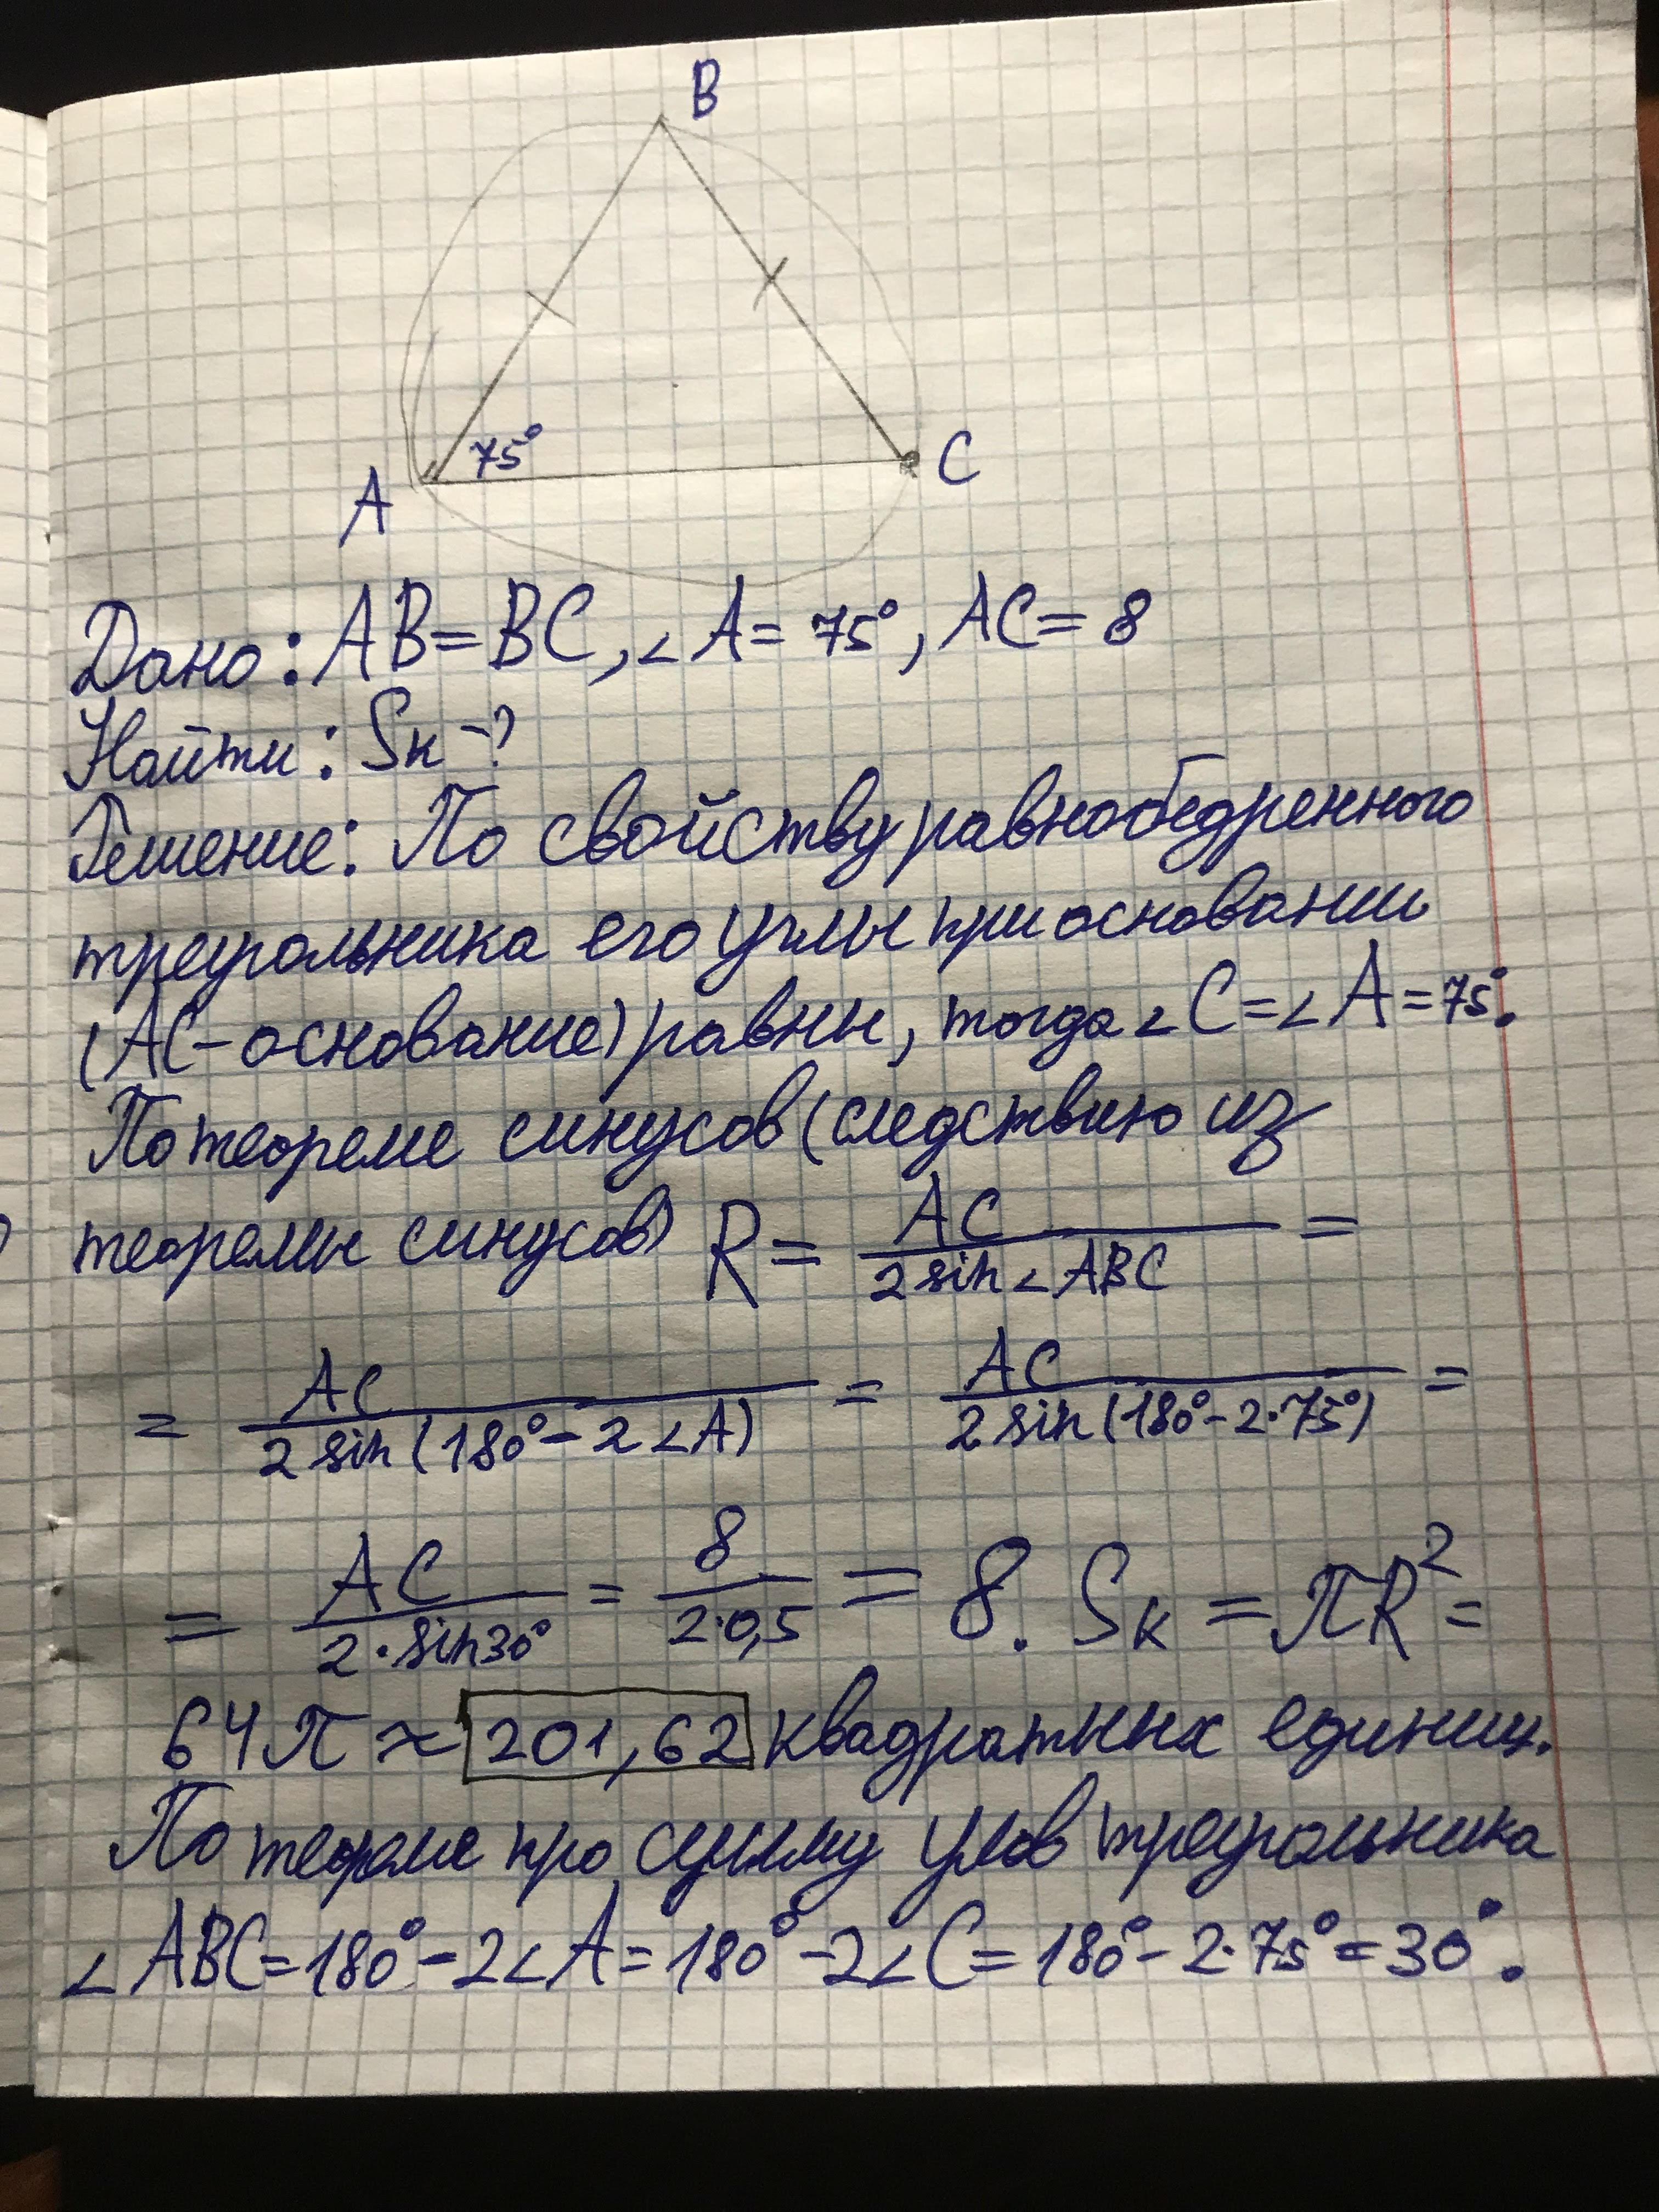 B
75°
A
C
Дано: AB=BC, ∠A=75°, AC=8
Найти: Sк-?
Решение: По свойству равнобедренного
треугольника его углы при основании
(AC-основание) равны, тогда ∠C=∠A=75°.
По теореме синусов (следствию из
теоремы синусов) R = AC / 2sin∠ABC =
= AC / 2sin(180°-2∠A) = AC / 2sin(180°-2·75°) =
= AC / 2·sin30° = 8 / 2·0,5 = 8. Sк = πR² =
64π ≈ 201,62 квадратных единиц.
По теореме про сумму углов треугольника
∠ABC=180°-2∠A=180°-2∠C=180°-2·75°=30°.